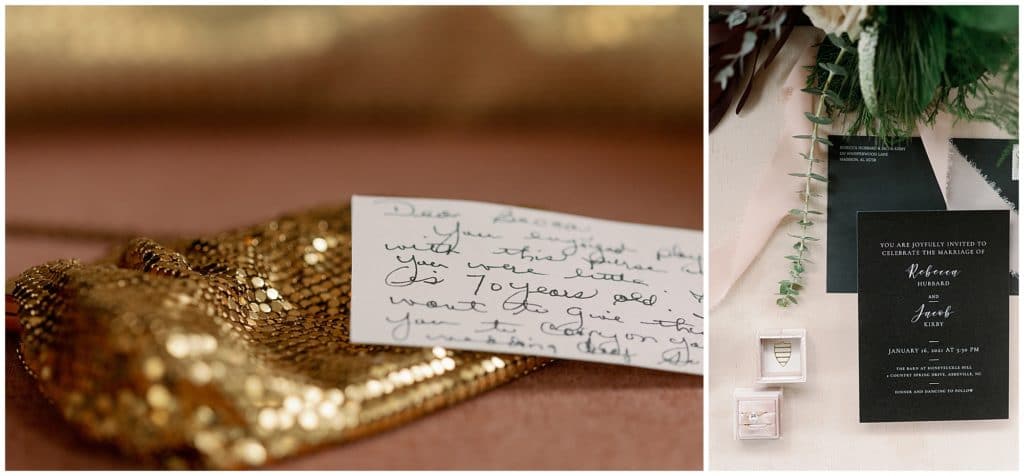 Dear
You enjoyed play
with this purse
you were little.
Is 70 years old.
want to give this
You to carry on yo
wedding day.
REBECCA HUBBARD & JACOB KIRBY
MADISON, AL 35758
YOU ARE JOYFULLY INVITED TO
CELEBRATE THE MARRIAGE OF
Rebecca
HUBBARD
AND
Jacob
KIRBY
JANUARY 16, 2021 AT 3:30 PM
THE BARN AT HONEYSUCKLE HILL
COUNTRY SPRING DRIVE, ASHEVILLE, NC
DINNER AND DANCING TO FOLLOW